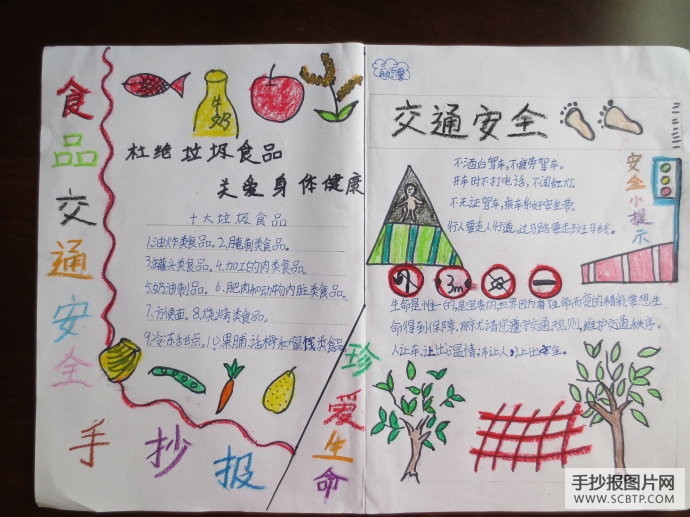 食品交通安全
手抄报
牛奶
杜绝垃圾食品
关爱身体健康
十大垃圾食品
1.油炸类食品。2.腌制类食品。
3.罐头类食品。4.加工的肉类食品。
5.奶油制品。6.肥肉和动物内脏类食品。
7.方便面。8.烧烤类食品。
9.冷冻甜点。10.果脯、话梅和蜜饯类食品
珍爱生命
交通安全
安全小提示
不酒后驾车,不疲劳驾车。
开车时不打电话,不闯红灯
不无证驾车,乘车系好安全带。
行人要走人行道,过马路要走斑马线。
3m
生命是惟一的,是宝贵的,世界因为有了生命而变的精彩,要想生
命得到保障,那就请您遵守交通规则,维护交通秩序。
人让车,让出温情;车让人,让出
手抄报图片网
WWW.SCBTP.COM